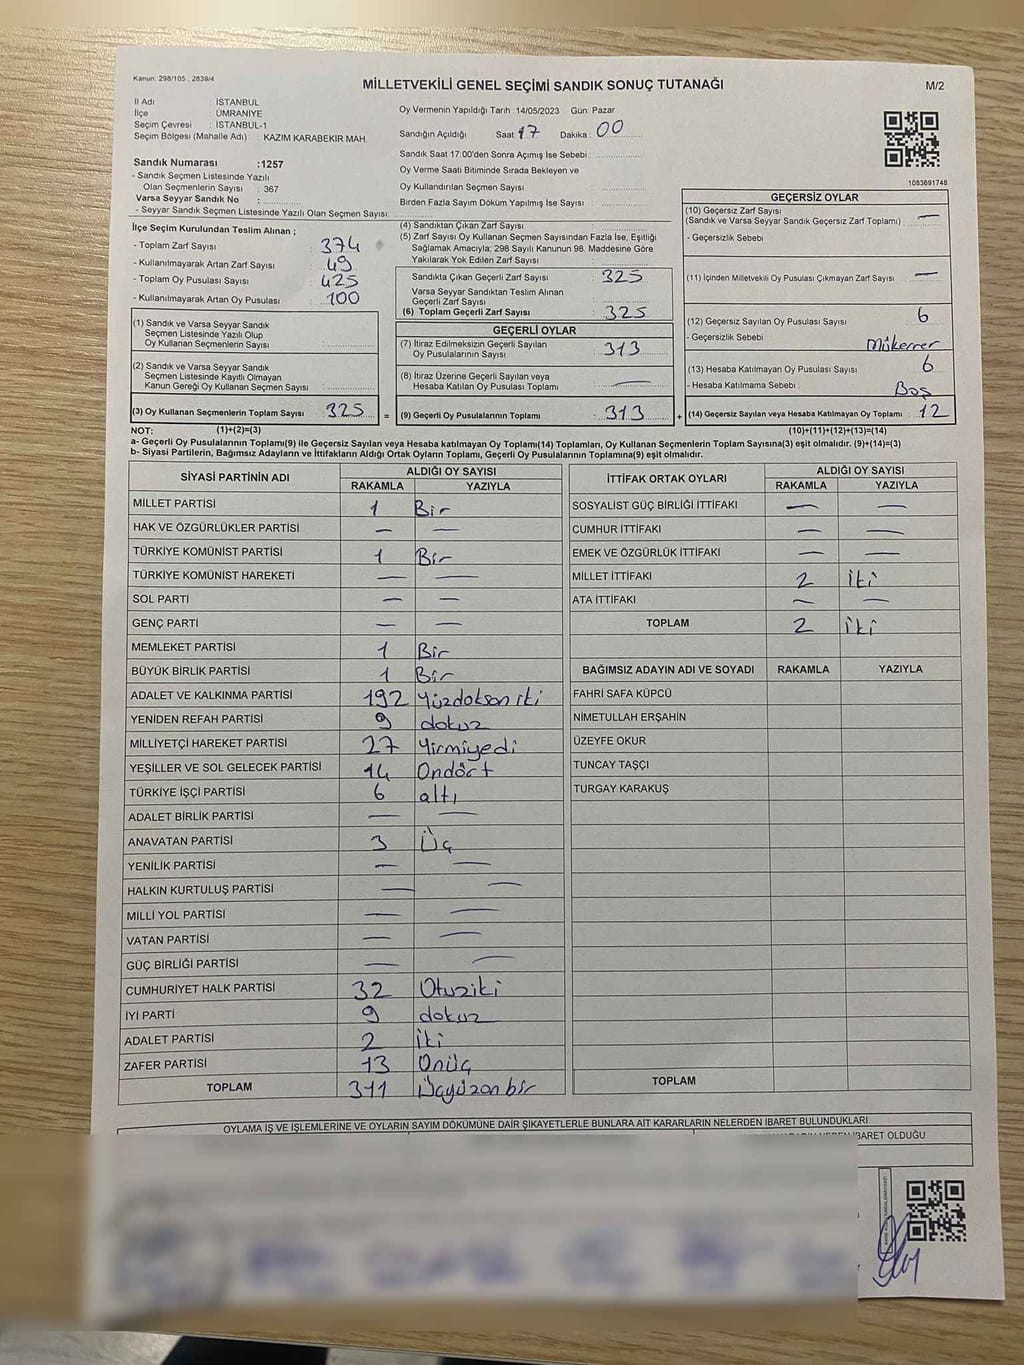 Kanun: 298/105 , 2839/4
MİLLETVEKİLİ GENEL SEÇİMİ SANDIK SONUÇ TUTANAĞI
M/2
İl Adı : İSTANBUL
İlçe : ÜMRANİYE
Seçim Çevresi : İSTANBUL-1
Seçim Bölgesi (Mahalle Adı) : KAZIM KARABEKİR MAH.
Sandık Numarası :1257
- Sandık Seçmen Listesinde Yazılı
Olan Seçmenlerin Sayısı : 367
Varsa Seyyar Sandık No :
- Seyyar Sandık Seçmen Listesinde Yazılı Olan Seçmen Sayısı:
Oy Vermenin Yapıldığı Tarih :14/05/2023 Gün: Pazar
Sandığın Açıldığı Saat: 17 Dakika : 00
Sandık Saat 17:00'den Sonra Açımış İse Sebebi :
Oy Verme Saati Bitiminde Sırada Bekleyen ve
Oy Kullandırılan Seçmen Sayısı :
Birden Fazla Sayım Döküm Yapılmış İse Sayısı :
1083691748
İlçe Seçim Kurulundan Teslim Alınan ;
- Toplam Zarf Sayısı : 374
- Kullanılmayarak Artan Zarf Sayısı : 49
- Toplam Oy Pusulası Sayısı : 425
- Kullanılmayarak Artan Oy Pusulası : 100
(1) Sandık ve Varsa Seyyar Sandık
Seçmen Listesinde Yazılı Olup
Oy Kullanan Seçmenlerin Sayısı :
(2) Sandık ve Varsa Seyyar Sandık
Seçmen Listesinde Kayıtlı Olmayan
Kanun Gereği Oy Kullanan Seçmen Sayısı :
(3) Oy Kullanan Seçmenlerin Toplam Sayısı : 325 =
(4) Sandıktan Çıkan Zarf Sayısı :
(5) Zarf Sayısı Oy Kullanan Seçmen Sayısından Fazla İse, Eşitliği
Sağlamak Amacıyla; 298 Sayılı Kanunun 98. Maddesine Göre
Yakılarak Yok Edilen Zarf Sayısı :
Sandıkta Çıkan Geçerli Zarf Sayısı : 325
Varsa Seyyar Sandıktan Teslim Alınan
Geçerli Zarf Sayısı :
(6) Toplam Geçerli Zarf Sayısı : 325
GEÇERLİ OYLAR
(7) İtiraz Edilmeksizin Geçerli Sayılan
Oy Pusulalarının Sayısı : 313
(8) İtiraz Üzerine Geçerli Sayılan veya
Hesaba Katılan Oy Pusulası Toplamı : —
(9) Geçerli Oy Pusulalarının Toplamı : 313 +
GEÇERSİZ OYLAR
(10) Geçersiz Zarf Sayısı
(Sandık ve Varsa Seyyar Sandık Geçersiz Zarf Toplamı) : —
- Geçersizlik Sebebi
(11) İçinden Milletvekili Oy Pusulası Çıkmayan Zarf Sayısı : —
(12) Geçersiz Sayılan Oy Pusulası Sayısı : 6
- Geçersizlik Sebebi : Mükerrer
(13) Hesaba Katılmayan Oy Pusulası Sayısı : 6
- Hesaba Katılmama Sebebi : Boş
(14) Geçersiz Sayılan veya Hesaba Katılmayan Oy Toplamı : 12
NOT: (1)+(2)=(3) (10)+(11)+(12)+(13)=(14)
a- Geçerli Oy Pusulalarının Toplamı(9) ile Geçersiz Sayılan veya Hesaba katılmayan Oy Toplamı(14) Toplamları, Oy Kullanan Seçmenlerin Toplam Sayısına(3) eşit olmalıdır. (9)+(14)=(3)
b- Siyasi Partilerin, Bağımsız Adayların ve İttifakların Aldığı Ortak Oyların Toplamı, Geçerli Oy Pusulalarının Toplamına(9) eşit olmalıdır.
SİYASİ PARTİNİN ADI ALDIĞI OY SAYISI
RAKAMLA YAZIYLA
MİLLET PARTİSİ 1 Bir
HAK VE ÖZGÜRLÜKLER PARTİSİ — —
TÜRKİYE KOMÜNİST PARTİSİ 1 Bir
TÜRKİYE KOMÜNİST HAREKETİ — —
SOL PARTİ — —
GENÇ PARTİ — —
MEMLEKET PARTİSİ 1 Bir
BÜYÜK BİRLİK PARTİSİ 1 Bir
ADALET VE KALKINMA PARTİSİ 192 Yüzdoksan iki
YENİDEN REFAH PARTİSİ 9 dokuz
MİLLİYETÇİ HAREKET PARTİSİ 27 Yirmiyedi
YEŞİLLER VE SOL GELECEK PARTİSİ 14 Ondört
TÜRKİYE İŞÇİ PARTİSİ 6 altı
ADALET BİRLİK PARTİSİ — —
ANAVATAN PARTİSİ 3 Üç
YENİLİK PARTİSİ — —
HALKIN KURTULUŞ PARTİSİ — —
MİLLİ YOL PARTİSİ — —
VATAN PARTİSİ — —
GÜÇ BİRLİĞİ PARTİSİ — —
CUMHURİYET HALK PARTİSİ 32 Otuziki
İYİ PARTİ 9 dokuz
ADALET PARTİSİ 2 İki
ZAFER PARTİSİ 13 Onüç
TOPLAM 311 Üçyüzonbir
İTTİFAK ORTAK OYLARI ALDIĞI OY SAYISI
RAKAMLA YAZIYLA
SOSYALİST GÜÇ BİRLİĞİ İTTİFAKI — —
CUMHUR İTTİFAKI — —
EMEK VE ÖZGÜRLÜK İTTİFAKI — —
MİLLET İTTİFAKI 2 İki
ATA İTTİFAKI — —
TOPLAM 2 İki
BAĞIMSIZ ADAYIN ADI VE SOYADI RAKAMLA YAZIYLA
FAHRİ SAFA KÜPCÜ
NİMETULLAH ERŞAHİN
ÜZEYFE OKUR
TUNCAY TAŞÇI
TURGAY KARAKUŞ
TOPLAM
OYLAMA İŞ VE İŞLEMLERİNE VE OYLARIN SAYIM DÖKÜMÜNE DAİR ŞİKAYETLERLE BUNLARA AİT KARARLARIN NELERDEN İBARET BULUNDUKLARI
İBARET OLDUĞU